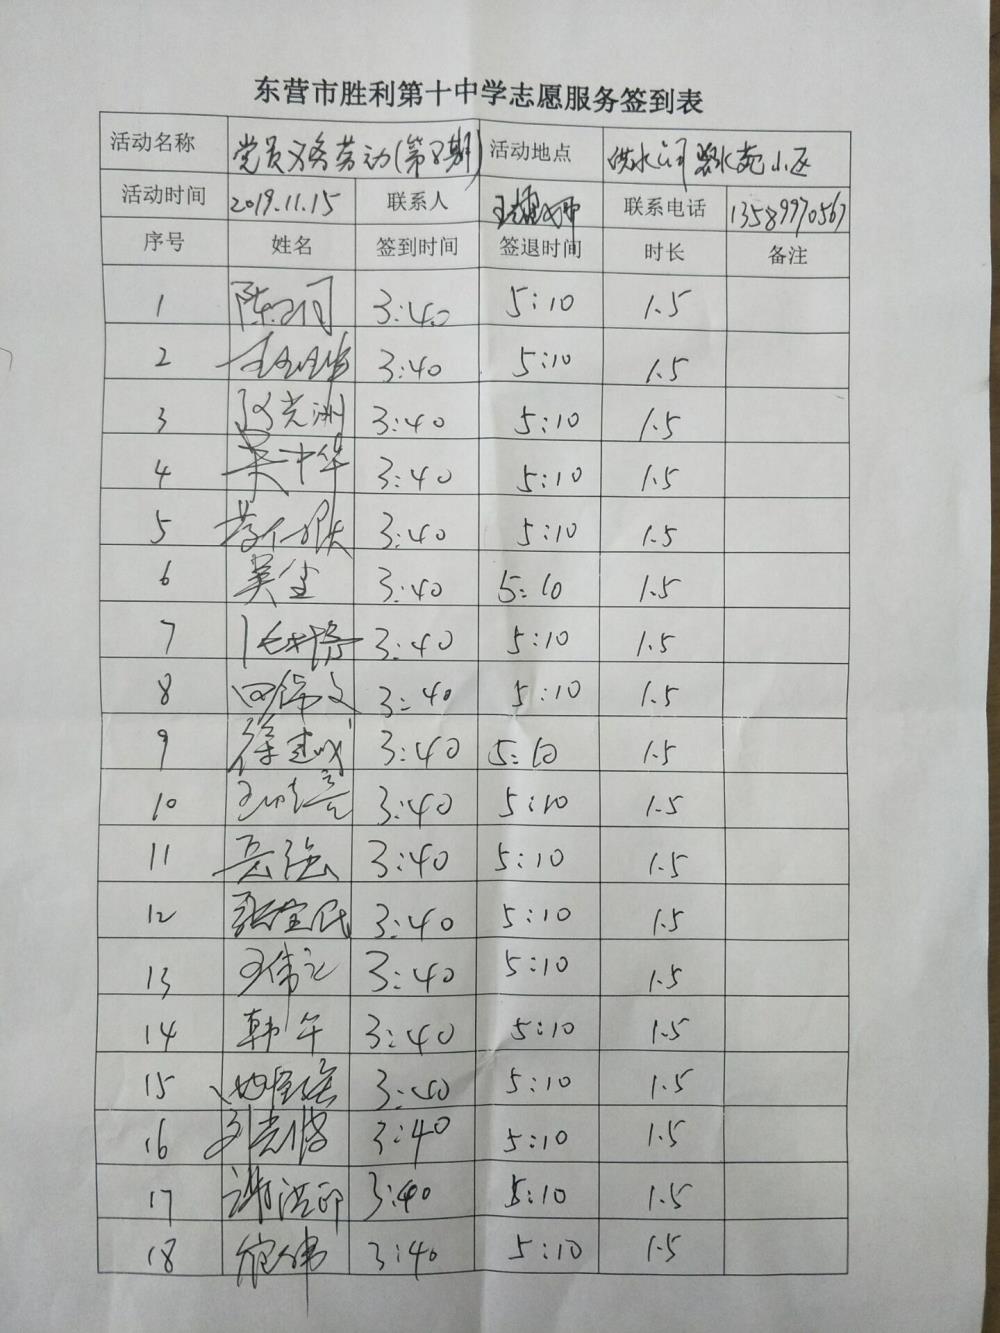 东营市胜利第十中学志愿服务签到表
活动名称 党员义务劳动(第8期) 活动地点 小区
活动时间 2019.11.15 联系人 联系电话 13589970567
序号 姓名 签到时间 签退时间 时长 备注
1 3:40 5:10 1.5
2 3:40 5:10 1.5
3 赵光洲 3:40 5:10 1.5
4 宋中华 3:40 5:10 1.5
5 3:40 5:10 1.5
6 3:40 5:10 1.5
7 3:40 5:10 1.5
8 田伟文 3:40 5:10 1.5
9 徐建成 3:40 5:10 1.5
10 3:40 5:10 1.5
11 岳强 3:40 5:10 1.5
12 张宝民 3:40 5:10 1.5
13 王伟 3:40 5:10 1.5
14 韩午 3:40 5:10 1.5
15 3:40 5:10 1.5
16 3:40 5:10 1.5
17 谢洪印 3:40 5:10 1.5
18 3:40 5:10 1.5